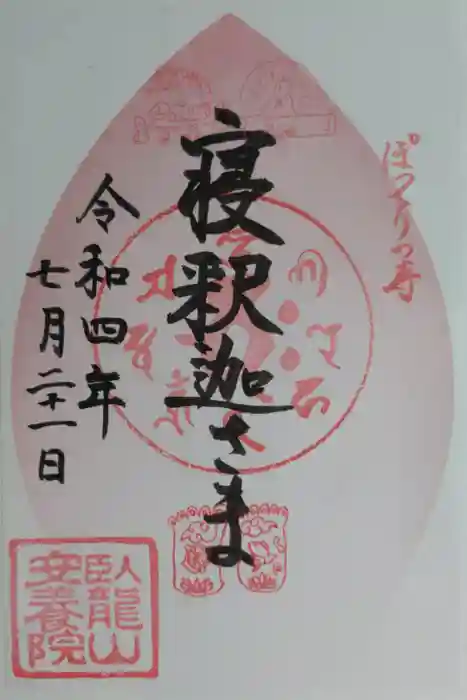 ぽっくり寺
寝釈迦さま
令和四年
七月二十一日
臥龍山
安養院